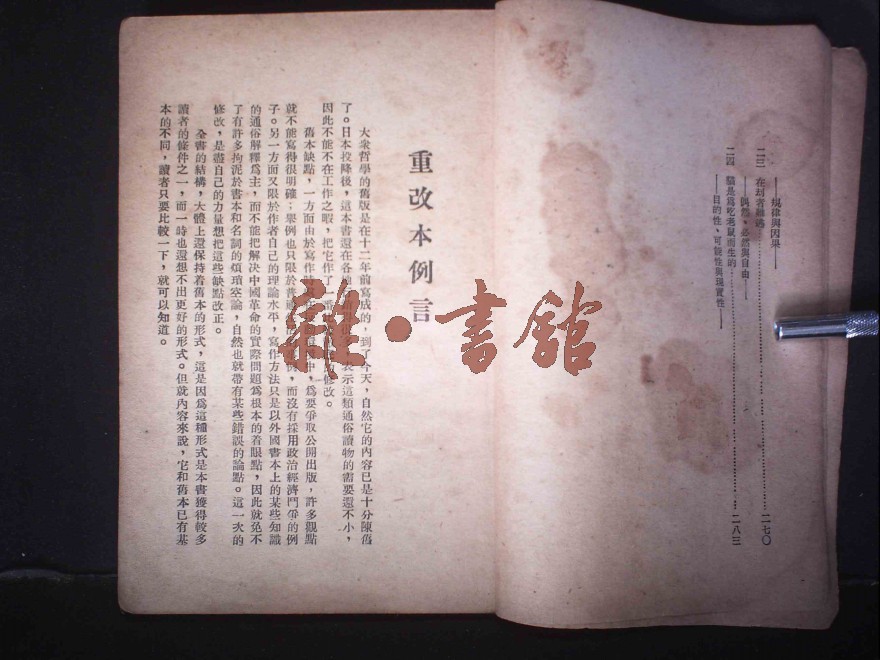 ——規律與因果——
二三 在劫者難逃……二七〇
——偶然、必然與自由——
二四 貓是爲吃老鼠而生的……二八三
——目的性、可能性與現實性——
重改本例言
大衆哲學的舊版是在十二年前寫成的，到了今天，自然它的內容已是十分陳舊
了。日本投降後，這本書還在各地 表示這類通俗讀物的需要還不小，
因此不能不在工作之暇，把它作了一番 修改。
舊本缺點，一方面由於寫作時 中，爲要爭取公開出版，許多觀點
就不能寫得很明確；舉例也只限於 例，而沒有採用政治經濟鬥爭的例
子。另一方面又限於作者自己的理論水平，寫作方法只是以外國書本上的某些知識
的通俗解釋爲主，而不能把解決中國革命的實際問題爲根本的着眼點，因此就免不
了有許多拘泥於書本和名詞的煩瑣空論，自然也就帶有某些錯誤的論點。這一次的
修改，是盡自己的力量想把這些缺點改正。
全書的結構，大體上還保持着舊本的形式，這是因爲這種形式是本書獲得較多
讀者的條件之一，而一時也還想不出更好的形式。但就內容來說，它和舊本已有基
本的不同，讀者只要比較一下，就可以知道。
雜·書館